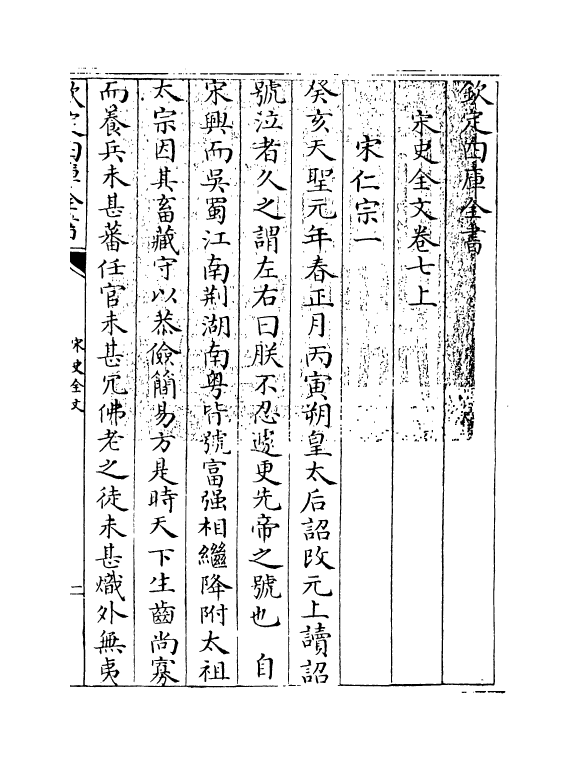 欽定四庫全書
宋史全文卷七上
宋仁宗一
癸亥天聖元年春正月丙寅朔皇太后詔改元上讀詔
號泣者久之謂左右曰朕不忍遽更先帝之號也 自
宋興而吳蜀江南荆湖南粤皆號富强相繼降附太祖
太宗因其畜藏守以恭儉簡易方是時天下生齒尚寡
而養兵未甚蕃任官未甚冗佛老之徒未甚熾外無夷
欽定四庫全書
宋史全文
二